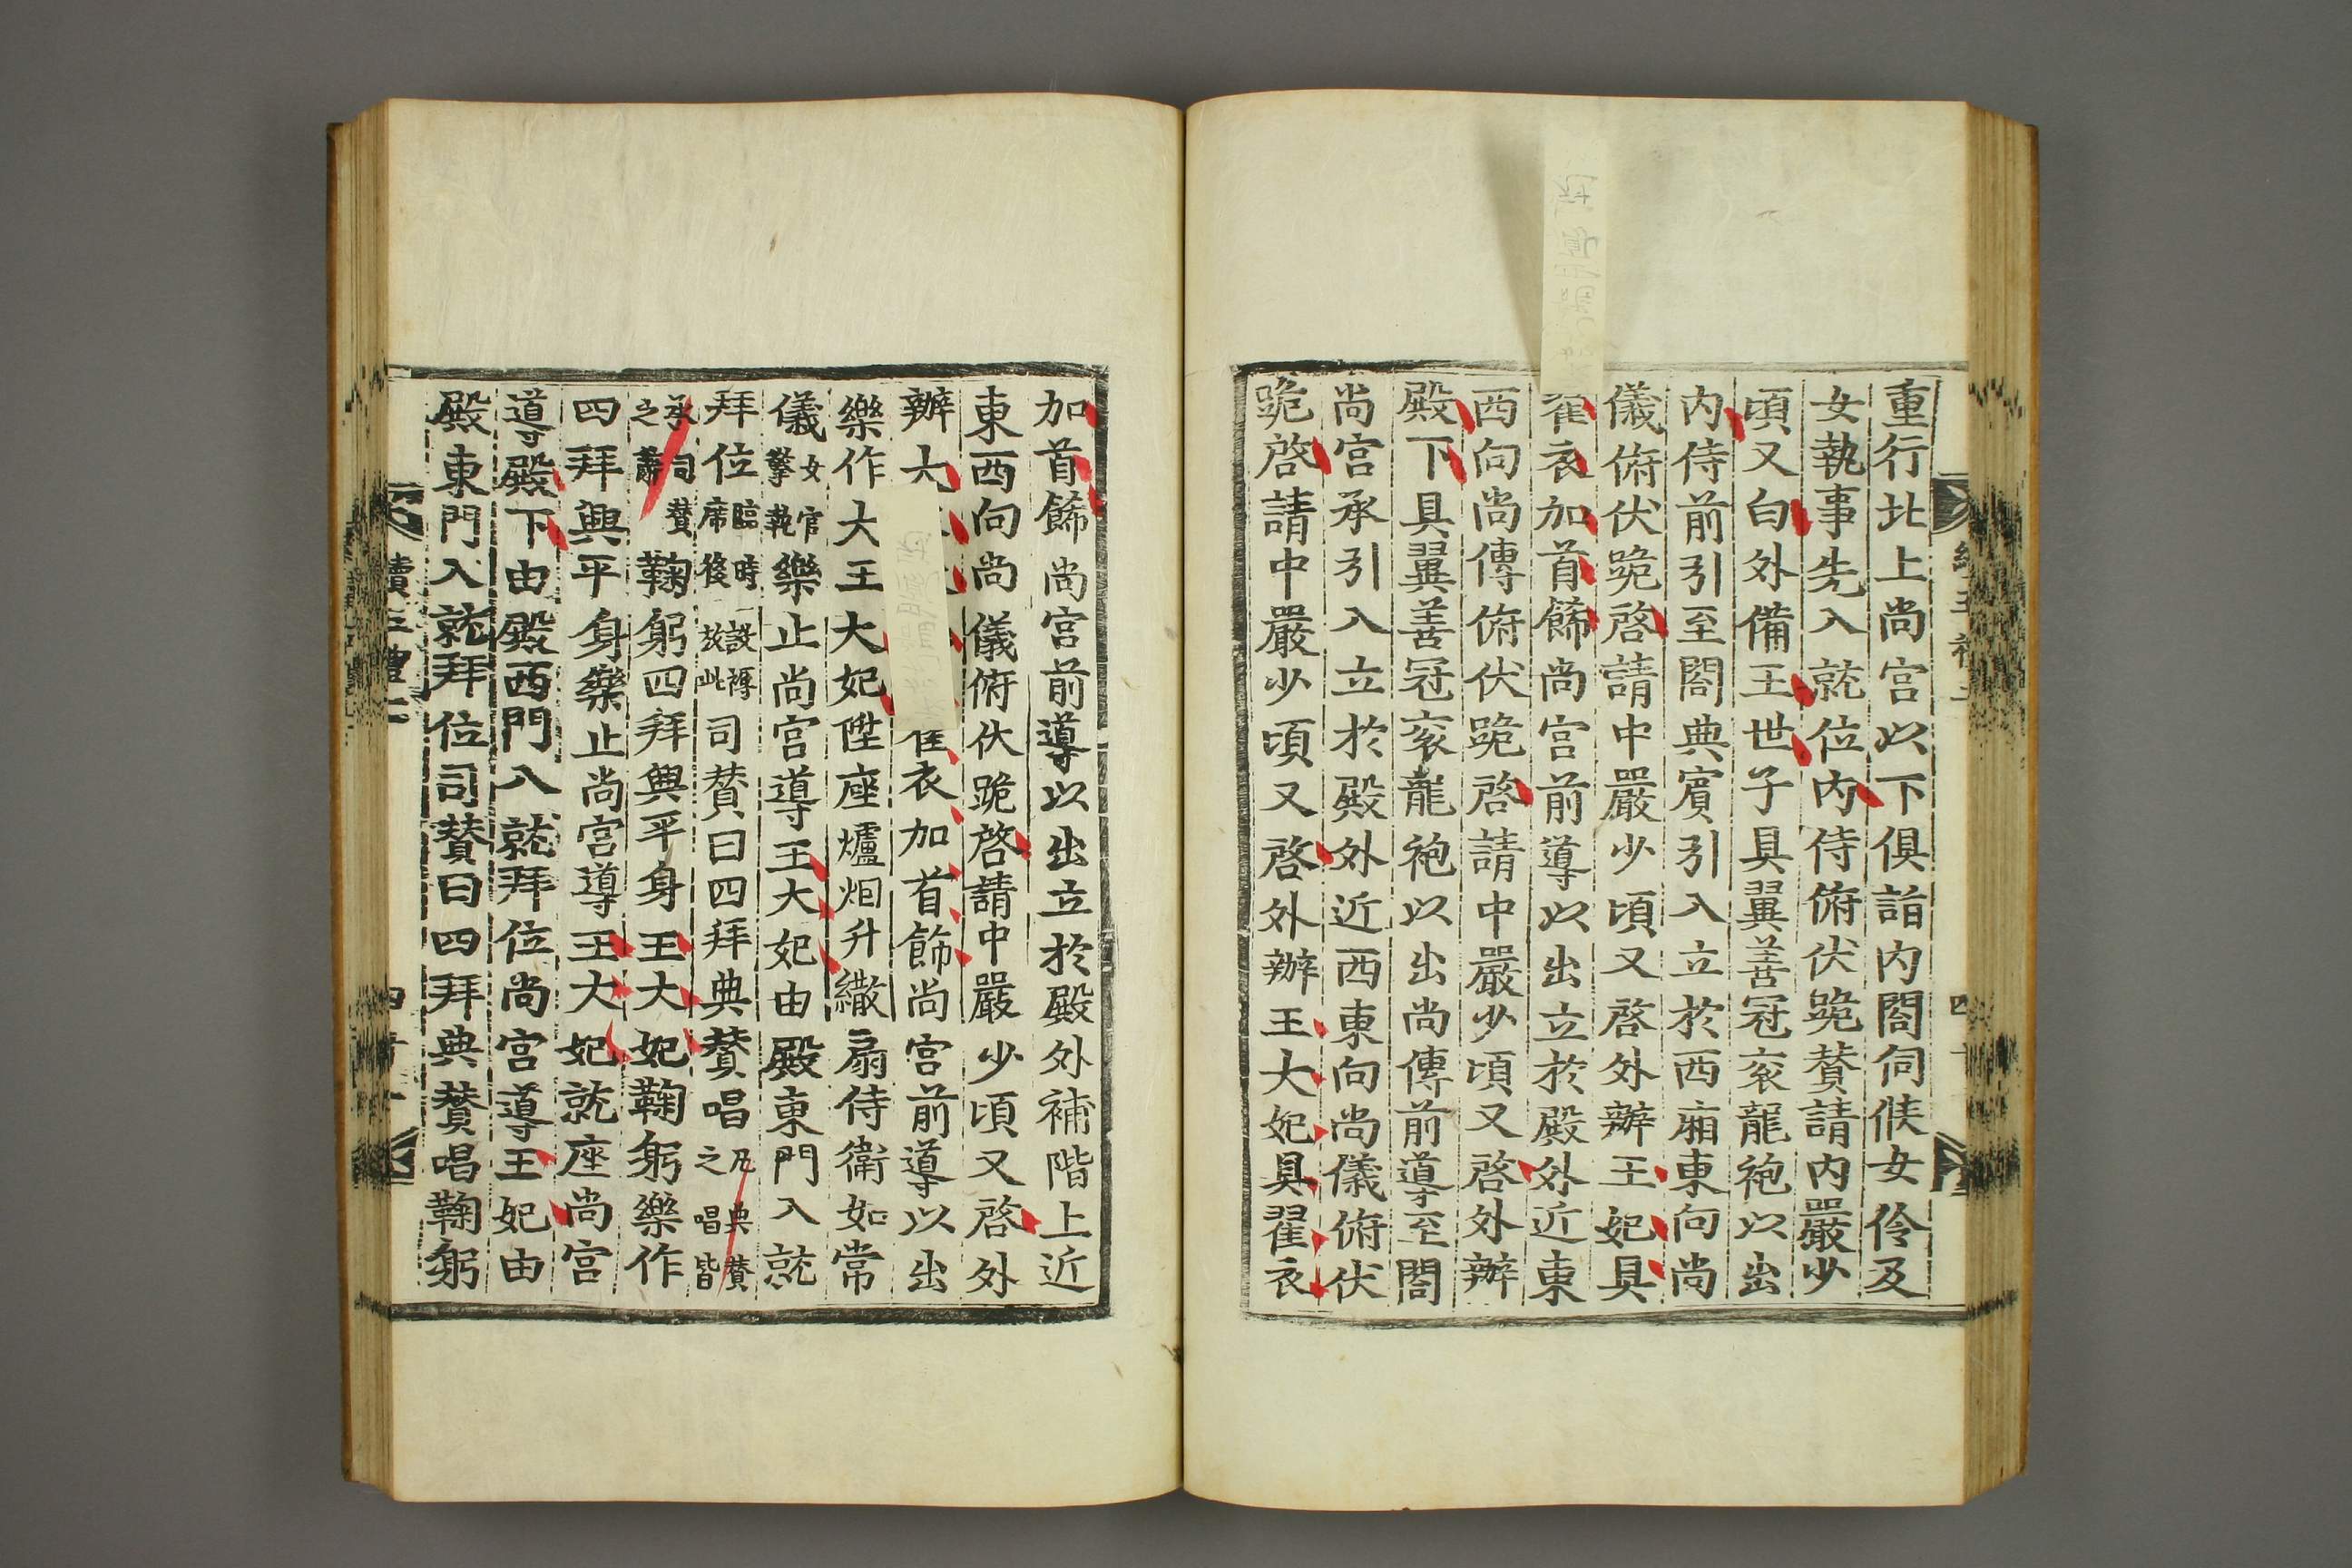 重行北上尚宮以下俱詣內閤伺候女伶及
女執事先入就位內侍俯伏跪賛請內嚴少
頃又白外備王世子具翼善冠衮龍袍以出
內侍前引至閤典賓引入立於西廂東向尚
儀俯伏跪啓請中嚴少頃又啓外辦王妃具
翟衣加首飾尚宮前導以出立於殿外近東
西向尚傳俯伏跪啓請中嚴少頃又啓外辦
殿下具翼善冠衮龍袍以出尚傳前導至閤
尚宮承引入立於殿外近西東向尚儀俯伏
跪啓請中嚴少頃又啓外辦王大妃具翟衣
加首飾尚宮前導以出立於殿外補階上近
東西向尚儀俯伏跪啓請中嚴少頃又啓外
辦大衣加首飾尚宮前導以出
樂作大王大妃陞座爐烟升繖扇侍衛如常
儀女官擎執樂止尚宮導王大妃由殿東門入就
拜位臨時設褥席後放此司賛曰四拜典賛唱凡典賛之唱皆
承司賛之辭鞠躬四拜興平身王大妃鞠躬樂作
四拜興平身樂止尚宮導王大妃就座尚宮
導殿下由殿西門入就拜位尚宮導王妃由
殿東門入就拜位司賛曰四拜典賛唱鞠躬
續五禮二